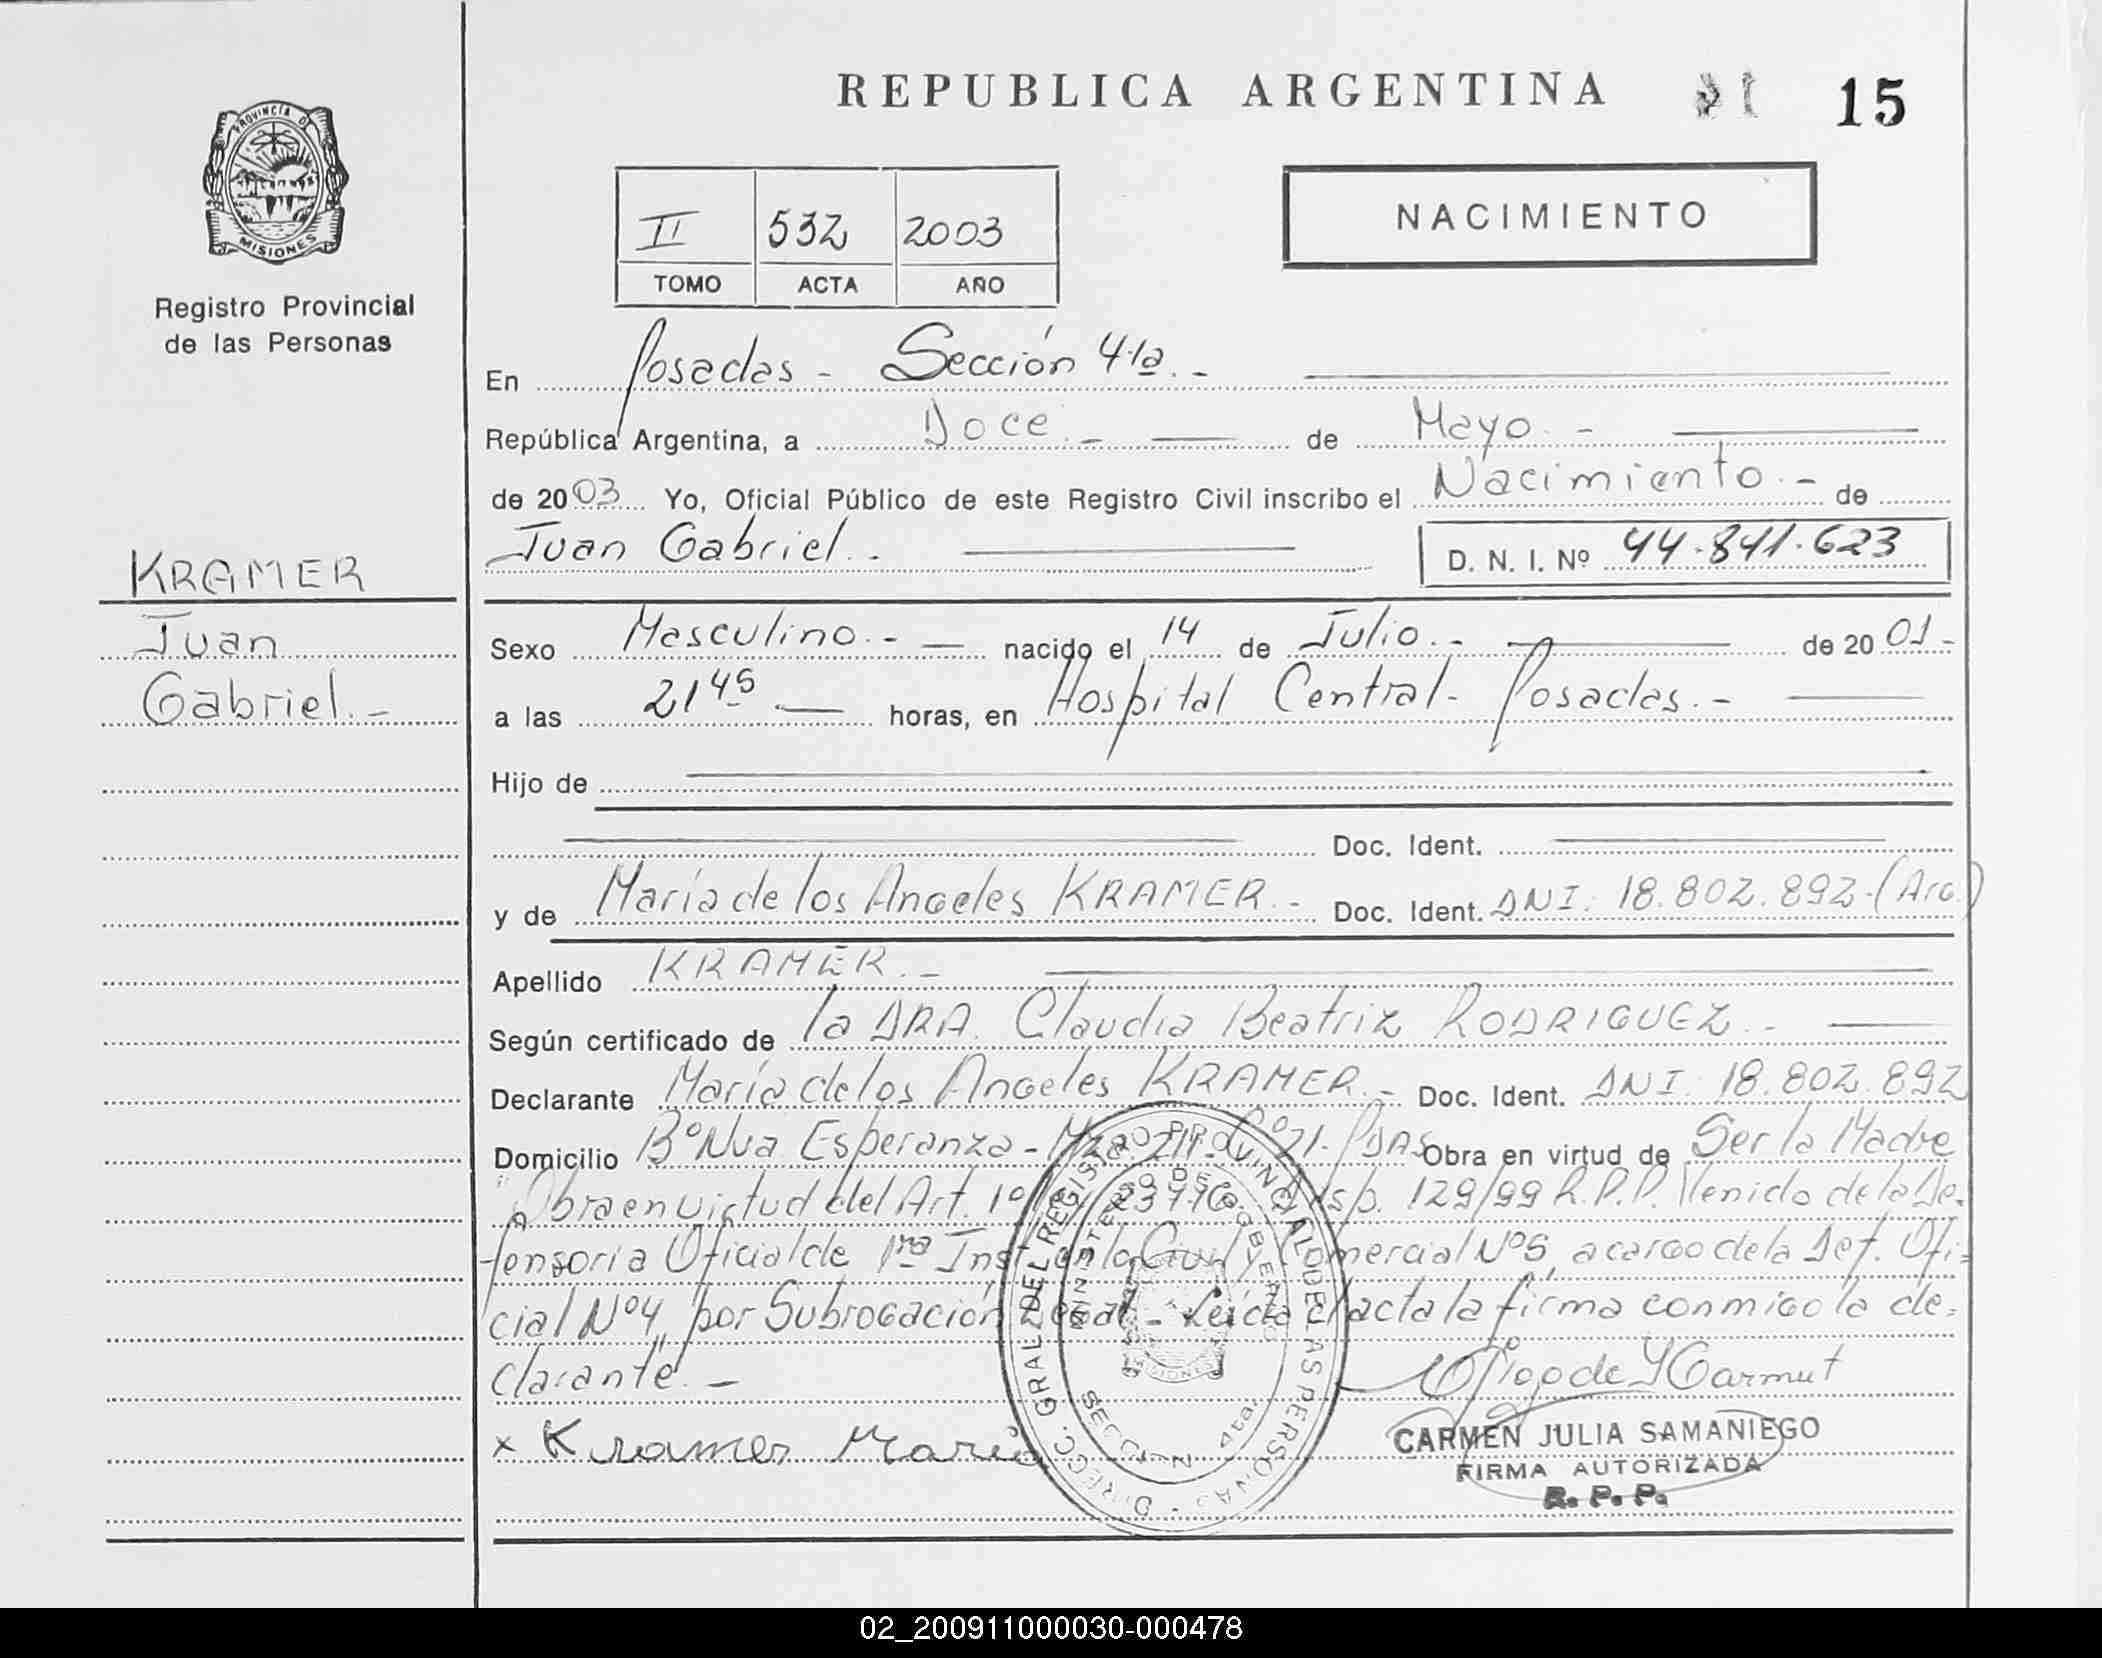 REPUBLICA ARGENTINA
15
PROVINCIA DE
MISIONES
Registro Provincial
de las Personas
II 532 2003
TOMO ACTA AÑO
NACIMIENTO
En Posadas - Sección 4ta. -
República Argentina, a Doce. - de Mayo. -
de 2003 Yo, Oficial Público de este Registro Civil inscribo el Nacimiento. - de
Juan Gabriel. -
D. N. I. Nº 44.841.623
KRAMER
Juan
Gabriel. -
Sexo Masculino. - nacido el 14 de Julio. - de 2001-
a las 21 45 horas, en Hospital Central - Posadas. -
Hijo de
Doc. Ident.
y de María de los Angeles KRAMER. - Doc. Ident. DNI. 18.802.892-(Arg.)
Apellido KRAMER. -
Según certificado de la DRA. Claudia Beatriz RODRIGUEZ. -
Declarante María de los Angeles KRAMER. - Doc. Ident. DNI. 18.802.892
Domicilio Bº Nva Esperanza - Pdas Obra en virtud de Ser la Madre
"Obra en virtud del Art. 1º Disp. 129/99 R.P.P. Venido de la De-
fensoria Oficial de 1ra Inst. en lo Civil y Comercial Nº5, a cargo de la Def. Ofi-
cial Nº4, por Subrogación Legal - Leída el acta la firma conmigo la de-
clarante". -
x Kramer Maria
DIRECC. GRAL. DEL REGISTRO PROVINCIAL DE LAS PERSONAS
MINISTERIO DE GOBIERNO
SECCION 4ta.
CARMEN JULIA SAMANIEGO
FIRMA AUTORIZADA
R. P. P.
02_200911000030-000478